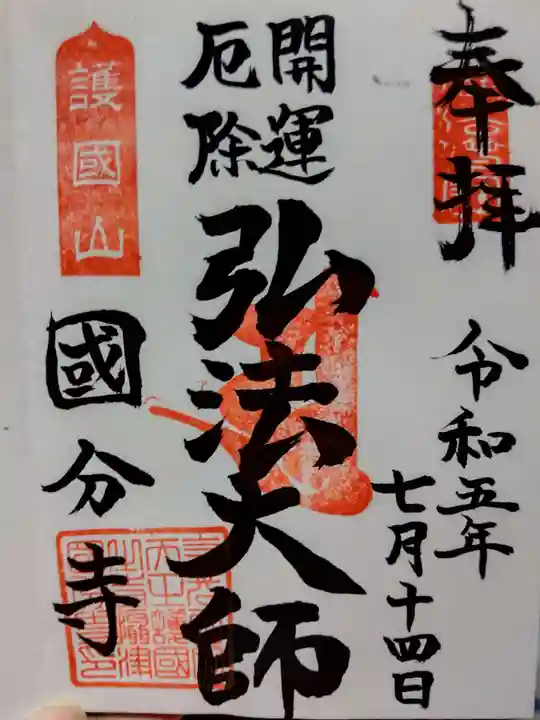 奉拝
令和五年
七月十四日
開運
厄除
弘法大師
護國山
國分寺